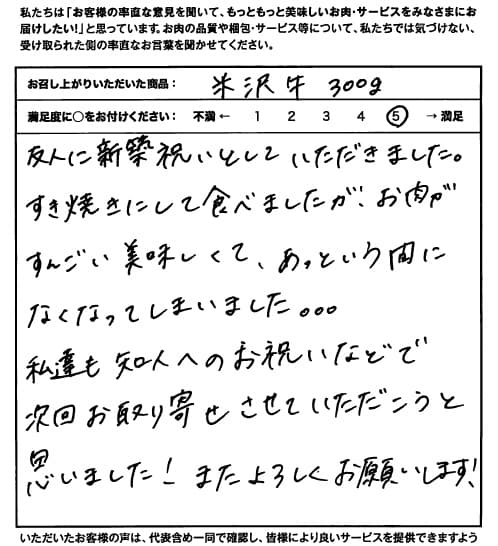 私たちは「お客様の率直な意見を聞いて、もっともっと美味しいお肉・サービスをみなさまにお
届けしたい!」と思っています。お肉の品質や梱包・サービス等について、私たちでは気づけない、
受け取られた側の率直なお言葉を聞かせてください。
お召し上がりいただいた商品: 米沢牛 300g
満足度に○をお付けください: 不満 ← 1 2 3 4 5 → 満足
友人に新築祝いとしていただきました。
すき焼きにして食べましたが、お肉が
すんごい美味しくて、あっという間に
なくなってしまいました。。。
私達も知人へのお祝いなどで
次回お取り寄せさせていただこうと
思いました! またよろしくお願いします!
いただいたお客様の声は、代表含め一同で確認し、皆様により良いサービスを提供できますよう